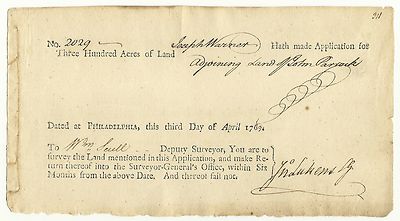 No. 2029 Joseph Warner Hath made Application for
Three Hundred Acres of Land
Adjoining Land of John
Dated at PHILADELPHIA, this third Day of April 1769.
To Wm Scull Deputy Surveyor, You are to
survey the Land mentioned in this Application, and make Re-
turn thereof into the Surveyor-General's Office, within Six
Months from the above Date. And thereof fail not.
Jno Lukens SG.